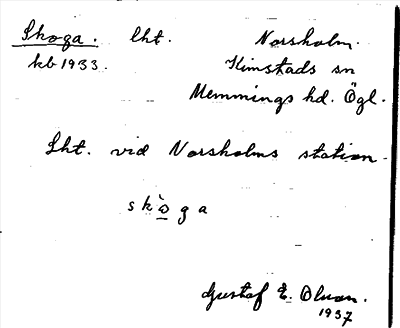 Skoga. lht. Norsholm.
kb 1933. Kimstads sn
Memmings hd. Ögl.
Lht. vid Norsholms station.
skòga
Gustaf E. Olson.
1937